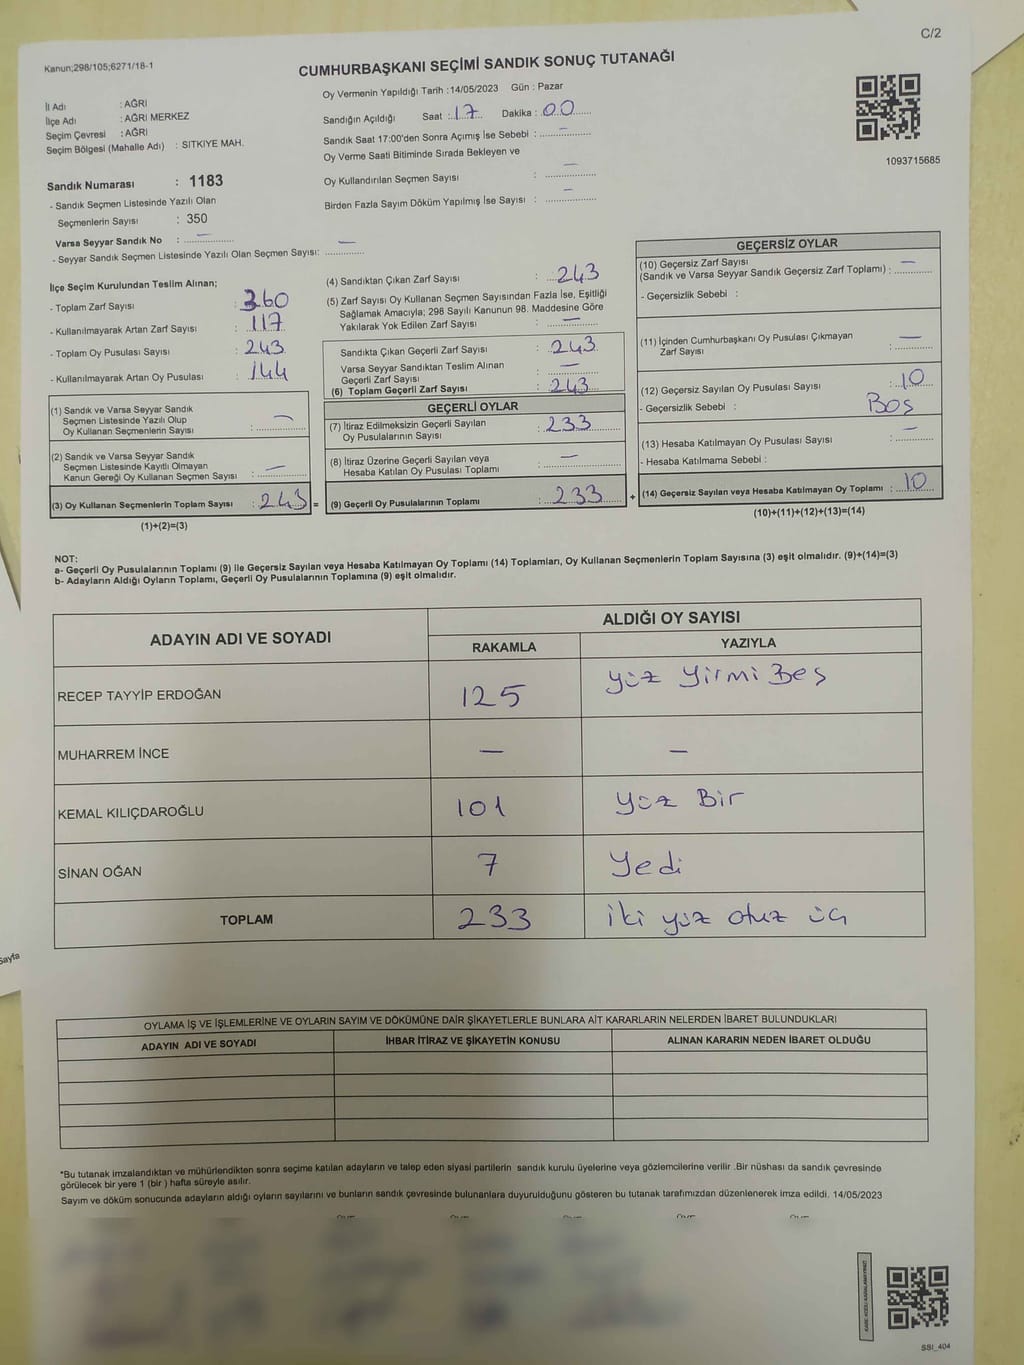 C/2
Kanun;298/105;6271/18-1
CUMHURBAŞKANI SEÇİMİ SANDIK SONUÇ TUTANAĞI
İl Adı : AĞRI
İlçe Adı : AĞRI MERKEZ
Seçim Çevresi : AĞRI
Seçim Bölgesi (Mahalle Adı) : SITKIYE MAH.
Sandık Numarası : 1183
- Sandık Seçmen Listesinde Yazılı Olan
Seçmenlerin Sayısı : 350
Varsa Seyyar Sandık No : —
- Seyyar Sandık Seçmen Listesinde Yazılı Olan Seçmen Sayısı: —
Oy Vermenin Yapıldığı Tarih :14/05/2023 Gün : Pazar
Sandığın Açıldığı Saat : 17 Dakika : 00
Sandık Saat 17:00'den Sonra Açımış İse Sebebi : —
Oy Verme Saati Bitiminde Sırada Bekleyen ve
Oy Kullandırılan Seçmen Sayısı : —
Birden Fazla Sayım Döküm Yapılmış İse Sayısı : —
1093715685
İlçe Seçim Kurulundan Teslim Alınan;
- Toplam Zarf Sayısı : 360
- Kullanılmayarak Artan Zarf Sayısı : 117
- Toplam Oy Pusulası Sayısı : 243
- Kullanılmayarak Artan Oy Pusulası : 144
(1) Sandık ve Varsa Seyyar Sandık
Seçmen Listesinde Yazılı Olup
Oy Kullanan Seçmenlerin Sayısı : —
(2) Sandık ve Varsa Seyyar Sandık
Seçmen Listesinde Kayıtlı Olmayan
Kanun Gereği Oy Kullanan Seçmen Sayısı : —
(3) Oy Kullanan Seçmenlerin Toplam Sayısı : 243 =
(1)+(2)=(3)
(4) Sandıktan Çıkan Zarf Sayısı : 243
(5) Zarf Sayısı Oy Kullanan Seçmen Sayısından Fazla İse, Eşitliği
Sağlamak Amacıyla; 298 Sayılı Kanunun 98. Maddesine Göre
Yakılarak Yok Edilen Zarf Sayısı : —
Sandıkta Çıkan Geçerli Zarf Sayısı : 243
Varsa Seyyar Sandıktan Teslim Alınan
Geçerli Zarf Sayısı : —
(6) Toplam Geçerli Zarf Sayısı : 243
GEÇERLİ OYLAR
(7) İtiraz Edilmeksizin Geçerli Sayılan
Oy Pusulalarının Sayısı : 233
(8) İtiraz Üzerine Geçerli Sayılan veya
Hesaba Katılan Oy Pusulası Toplamı : —
(9) Geçerli Oy Pusulalarının Toplamı : 233 +
GEÇERSİZ OYLAR
(10) Geçersiz Zarf Sayısı
(Sandık ve Varsa Seyyar Sandık Geçersiz Zarf Toplamı) : —
- Geçersizlik Sebebi :
(11) İçinden Cumhurbaşkanı Oy Pusulası Çıkmayan
Zarf Sayısı : —
(12) Geçersiz Sayılan Oy Pusulası Sayısı : 10
- Geçersizlik Sebebi : Boş
(13) Hesaba Katılmayan Oy Pusulası Sayısı : —
- Hesaba Katılmama Sebebi :
(14) Geçersiz Sayılan veya Hesaba Katılmayan Oy Toplamı : 10
(10)+(11)+(12)+(13)=(14)
NOT:
a- Geçerli Oy Pusulalarının Toplamı (9) ile Geçersiz Sayılan veya Hesaba Katılmayan Oy Toplamı (14) Toplamları, Oy Kullanan Seçmenlerin Toplam Sayısına (3) eşit olmalıdır. (9)+(14)=(3)
b- Adayların Aldığı Oyların Toplamı, Geçerli Oy Pusulalarının Toplamına (9) eşit olmalıdır.
ADAYIN ADI VE SOYADI ALDIĞI OY SAYISI
RAKAMLA YAZIYLA
RECEP TAYYİP ERDOĞAN 125 yüz yirmi Beş
MUHARREM İNCE — —
KEMAL KILIÇDAROĞLU 101 yüz Bir
SİNAN OĞAN 7 yedi
TOPLAM 233 iki yüz otuz üç
Sayfa
OYLAMA İŞ VE İŞLEMLERİNE VE OYLARIN SAYIM VE DÖKÜMÜNE DAİR ŞİKAYETLERLE BUNLARA AİT KARARLARIN NELERDEN İBARET BULUNDUKLARI
ADAYIN ADI VE SOYADI İHBAR İTİRAZ VE ŞİKAYETİN KONUSU ALINAN KARARIN NEDEN İBARET OLDUĞU
*Bu tutanak imzalandıktan ve mühürlendikten sonra seçime katılan adayların ve talep eden siyasi partilerin sandık kurulu üyelerine veya gözlemcilerine verilir .Bir nüshası da sandık çevresinde
görülecek bir yere 1 (bir ) hafta süreyle asılır.
Sayım ve döküm sonucunda adayların aldığı oyların sayılarını ve bunların sandık çevresinde bulunanlara duyurulduğunu gösteren bu tutanak tarafımızdan düzenlenerek imza edildi. 14/05/2023
SSI_404